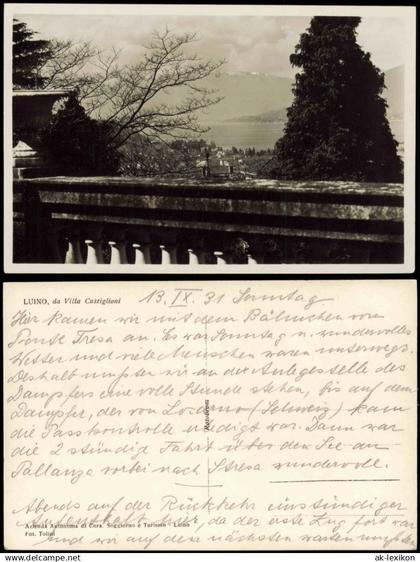 LUINO, da Villa Castiglioni
13. IX. 31 Sonntag
Hier kamen wir mit dem Bähnchen von
Ponte Tresa an. Es war Sonntag u. wundervolles
Wetter und viele Menschen waren unterwegs.
Deshalb mußten wir an der Anlegestelle des
Dampfers eine volle Stunde stehen, bis auf dem
Dampfer, der von Locarno (Schweiz) kam
die Passkontrolle erledigt war. Dann war
die 2 stündig Fahrt über den See an
Pallanza vorbei nach Stresa wundervoll.
Abends auf der Rückkehr einstündiger
Aufenthalt hier, da der erste Zug fort war
und wir auf den nächsten warten mußten
Azienda Autonoma di Cura, Soggiorno e Turismo - Luino
Fot. Tolini
© www.ak-lexikon.de